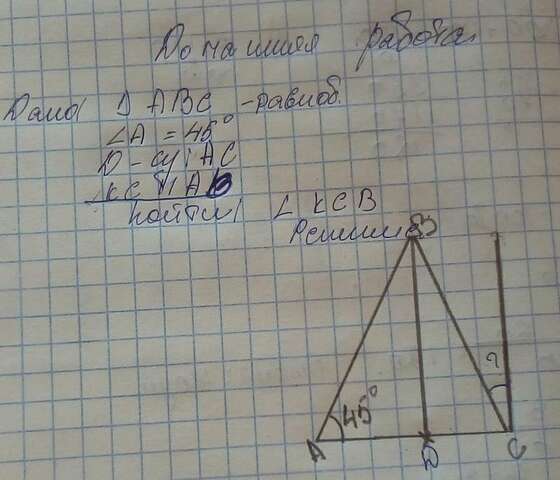 Домашняя работа
Дано: Δ ABC - равноб.
∠A = 45°
D - AC
∠KC || AB
Найти: ∠ KCB
Решение
B
?
45°
A D C